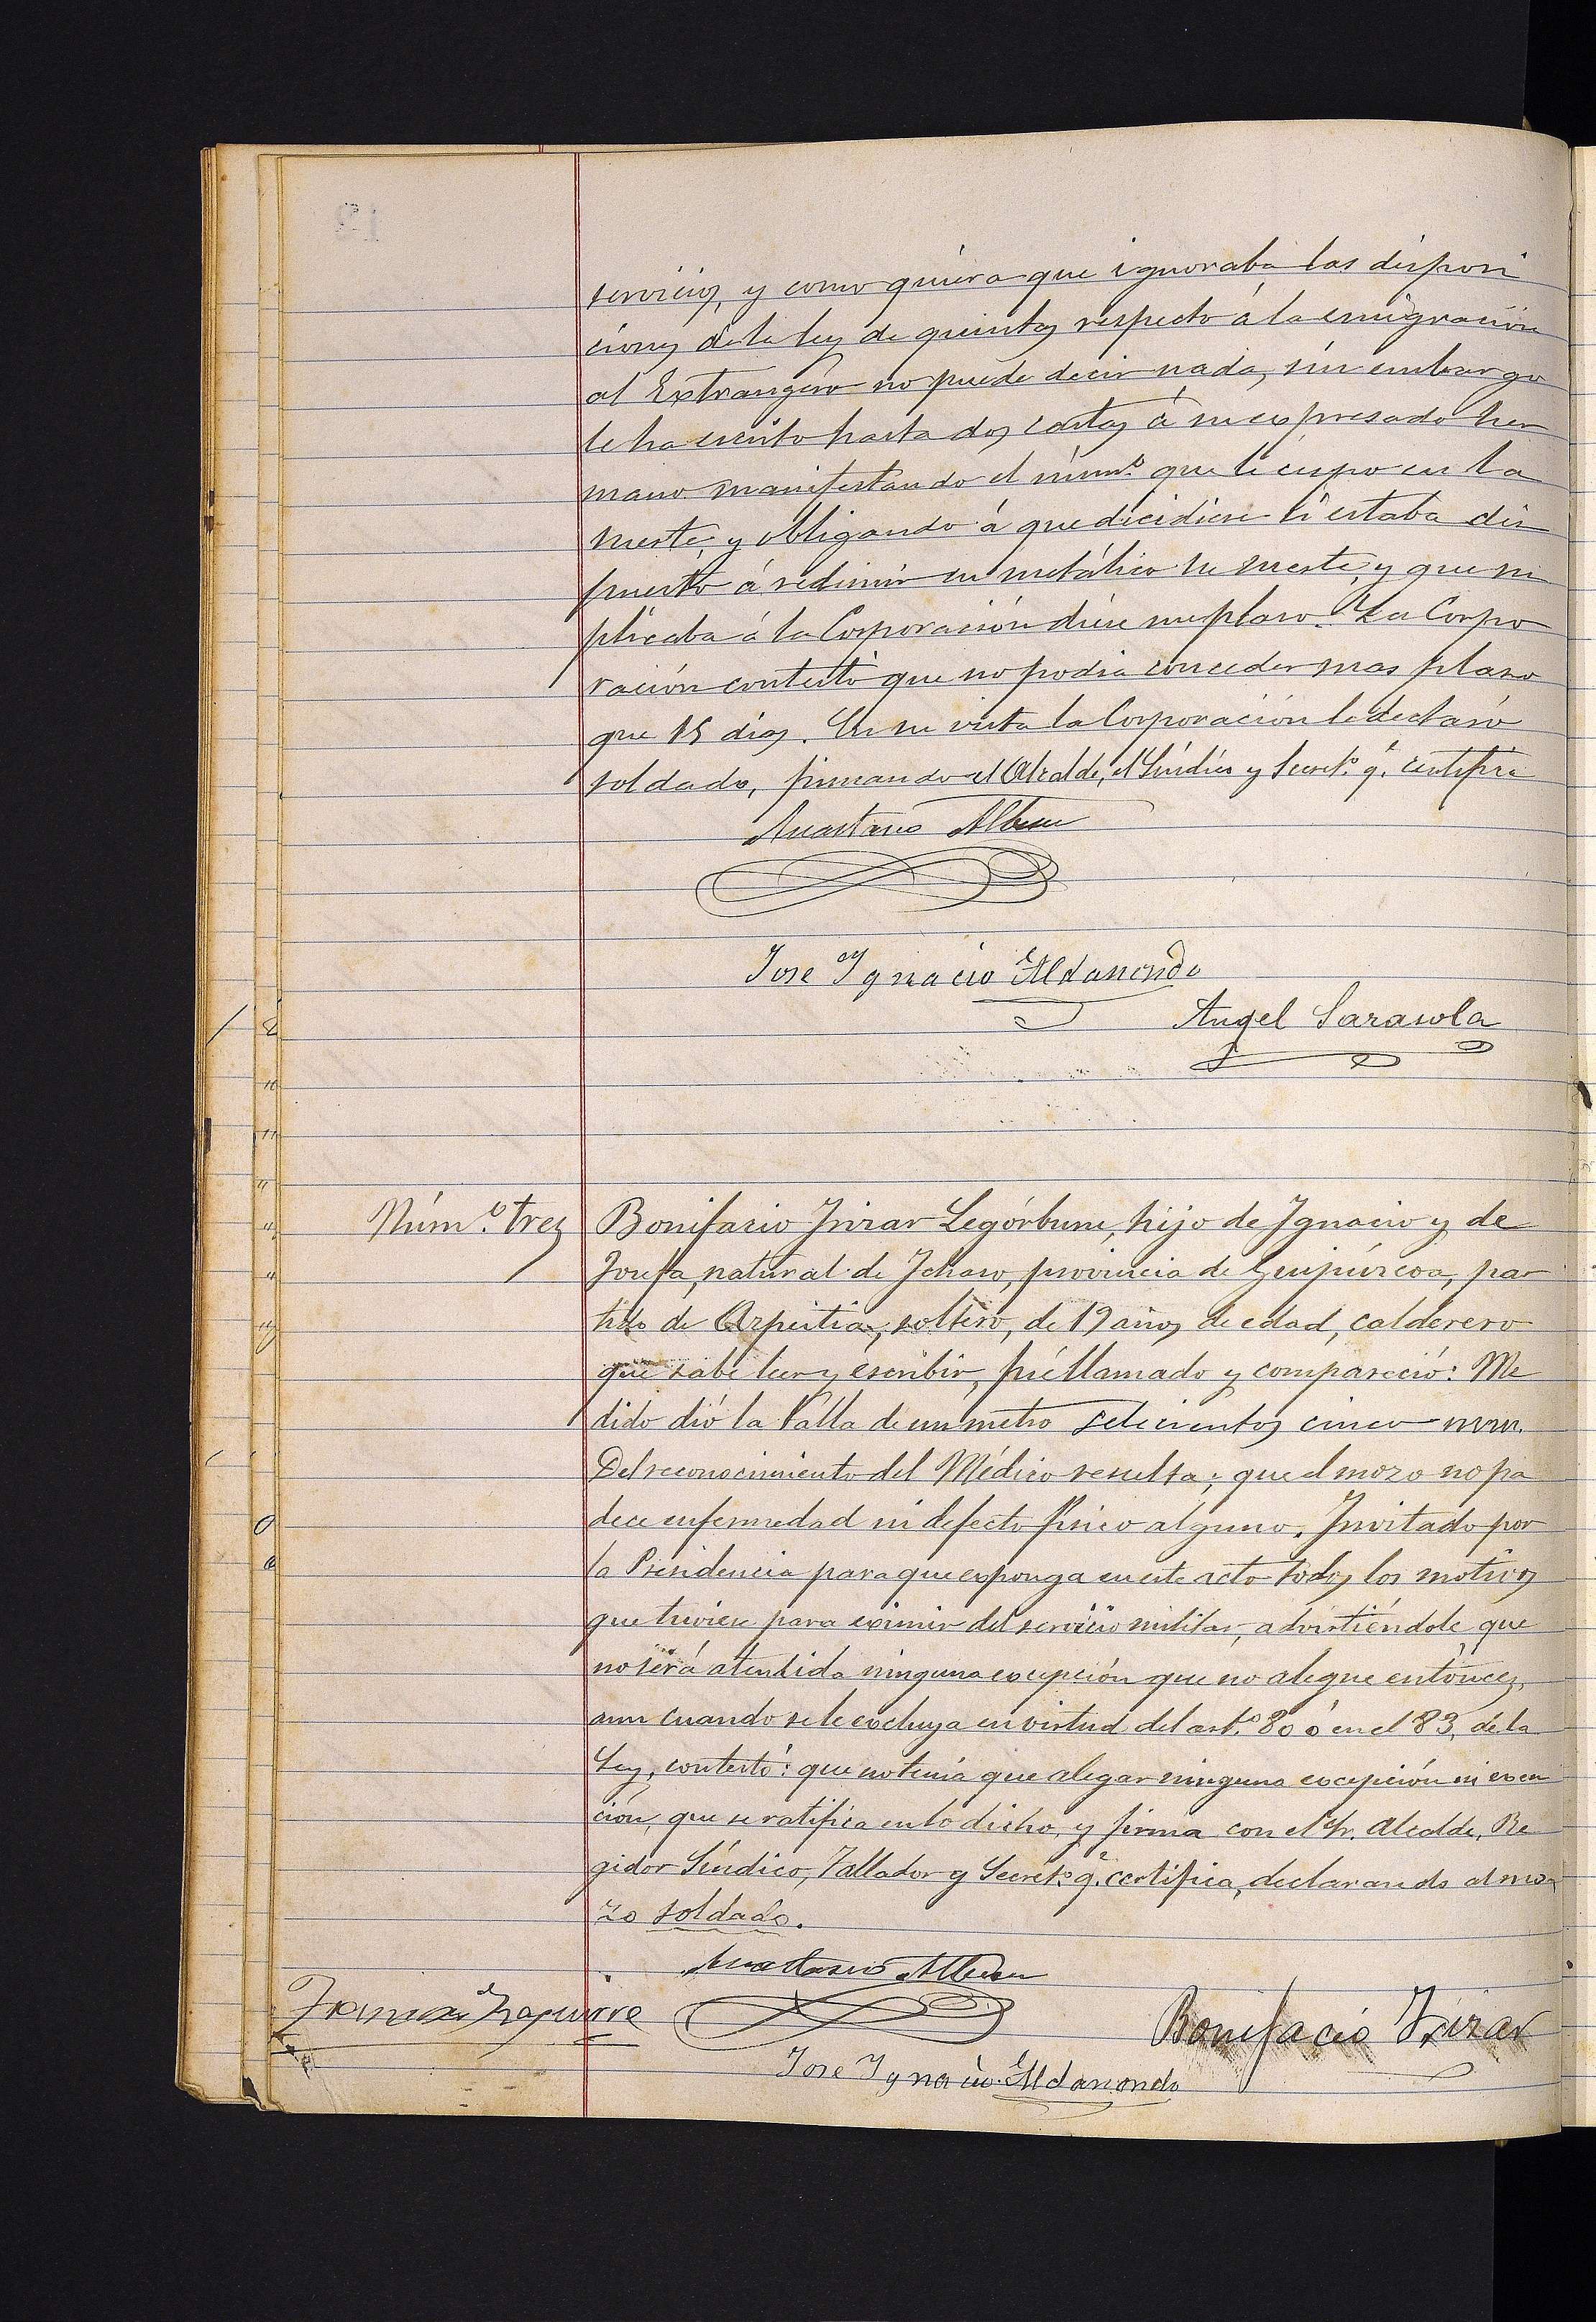 servicio, y como quiera que ignoraba las disposi
ciones de la ley de quintas respecto á la emigración
al Extrangero no puede decir nada, sin embargo
le ha escrito hasta dos cartas á su expresado her
mano manifestando el núm.º que le cupo en la
suerte, y obligando á que dicidiese si estaba dis
puesto á redimir en metálico su suerte, y que su
plicaba á la Corporación diese un plazo. La Corpo
ración contestó que no podia conceder mas plazo
que 15 dias. En su vista la Corporación le declaró
soldado, firmando el Alcalde, el Síndico y Secret.º q.e certifica
Anastasio Albisu
Jose Ygnacio Aldanondo
Angel Sarasola
Núm.º tres
Bonifacio Irizar Legórburu, hijo de Ygnacio y de
Josefa, natural de Ichaso, provincia de Guipúzcoa, par
tido de Azpeitia, soltero, de 19 años de edad, calderero
que sabe leer y escribir, fué llamado y compareció: Me
dido dió la talla de un metro setecientos cinco mm.
Del reconocimiento del Médico resulta; que el mozo no pa
dece enfermedad ni defecto fisico alguno. Invitado por
la Presidencia para que exponga en este acto todos los motivos
que tuviese para eximir del servicio militar, advirtiéndole que
no será atendida ninguna excepción que no alegue entónces,
aun cuando se le excluya en virtud del art.º 80 ó en el 83, de la
Ley, contestó: que no tenia que alegar ninguna excepción ni exen
ción, que se ratifica en lo dicho, y firma con el Sr. Alcalde, Re
gidor Síndico, Tallador y Secret.º q.e certifica, declarando al mo
zo soldado.
Anastasio Albisu
Francisco Izaguirre
Bonifacio Irizar
Jose Ygnacio Aldanondo